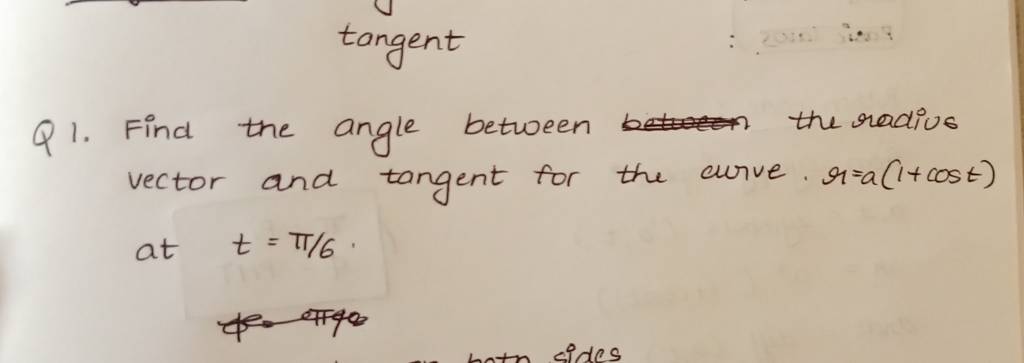 tangent :
Q 1. Find the angle between the radius
vector and tangent for the curve. r=a(1+cost)
at t = π/6.
both sides